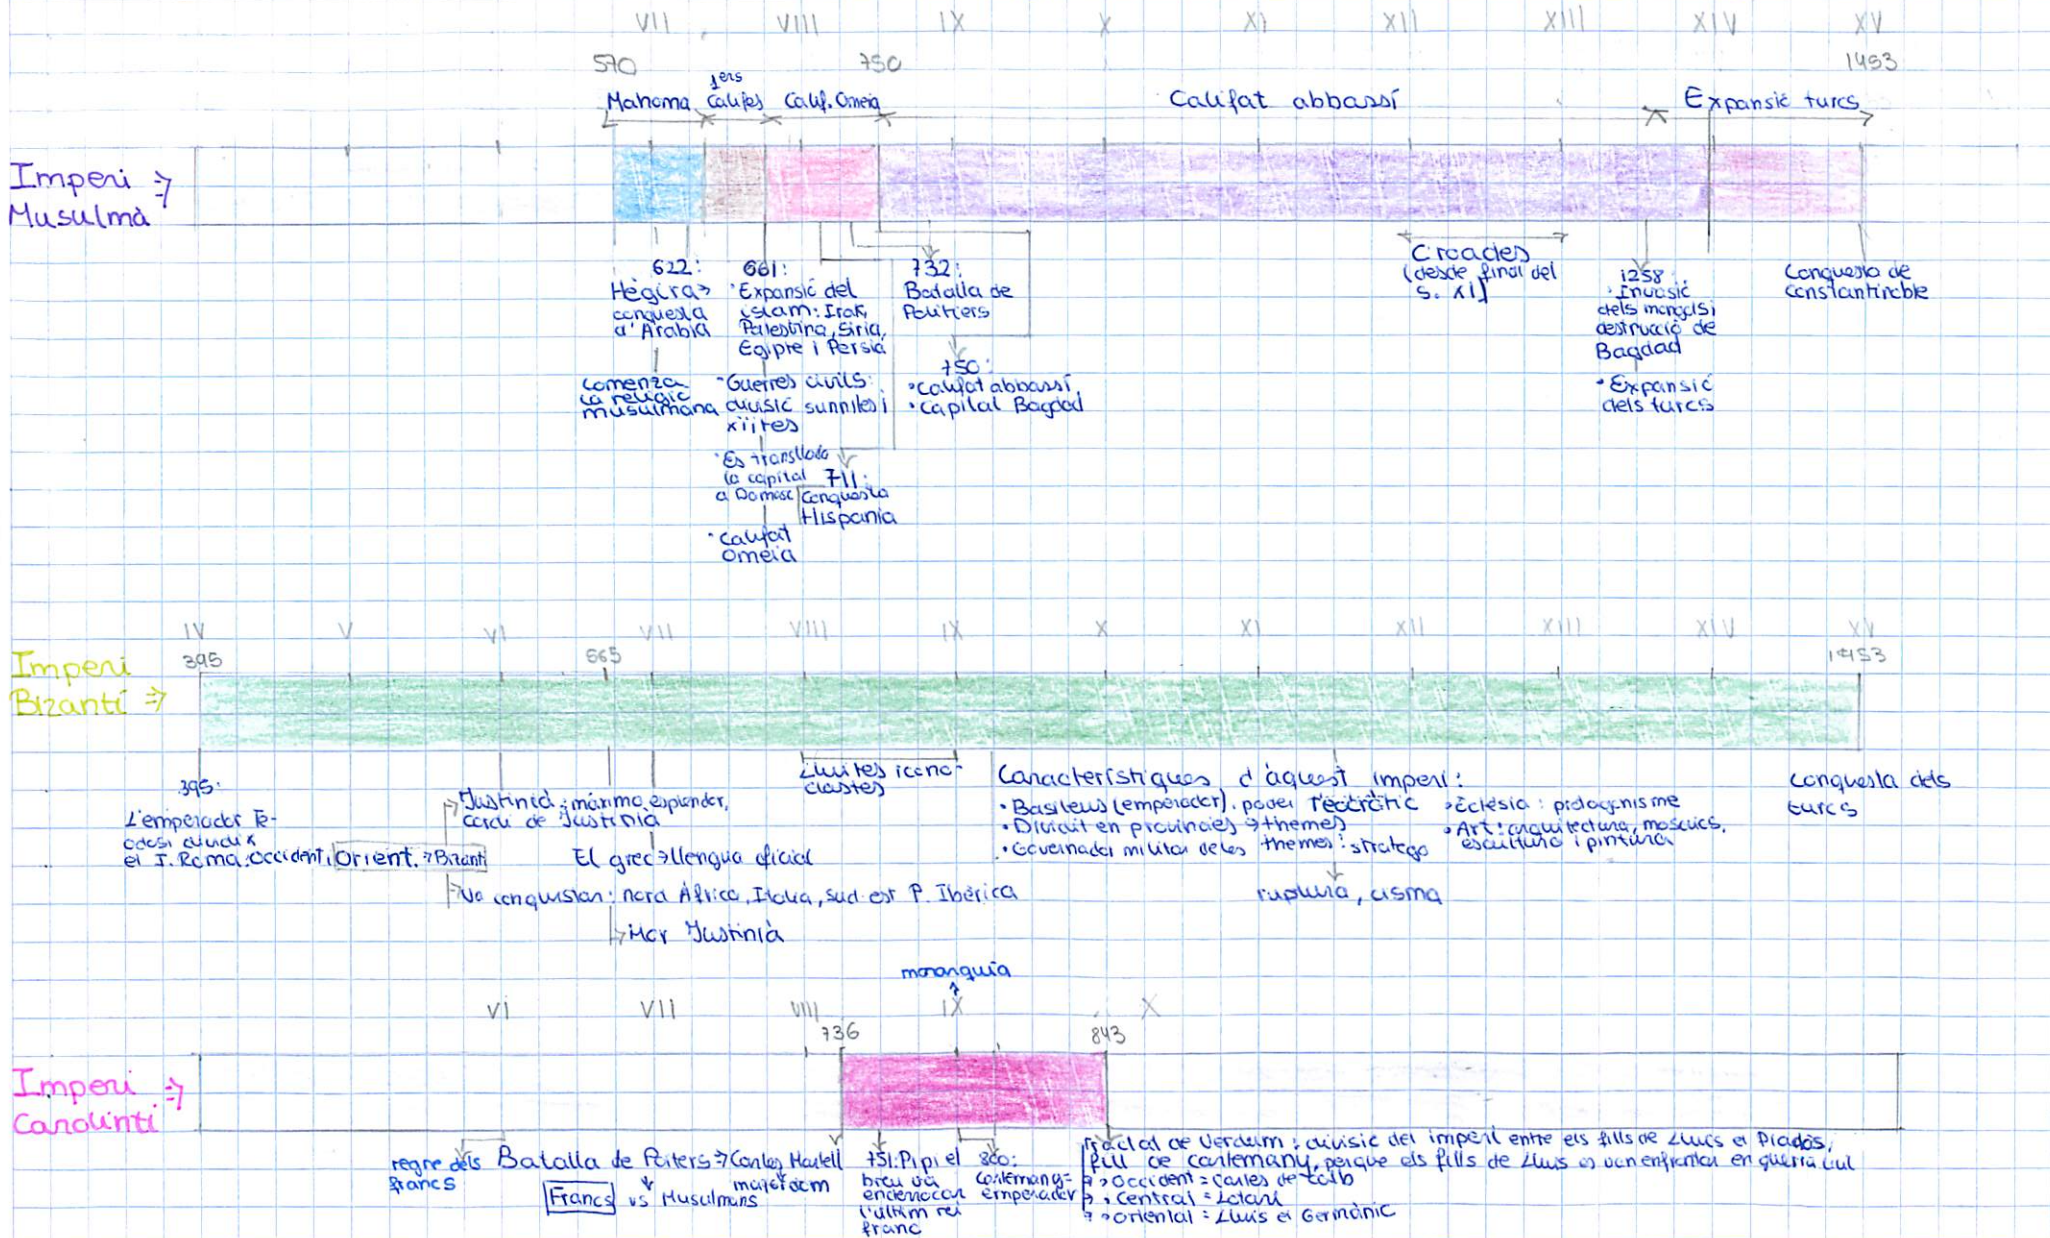 VII VIII IX X XI XII XIII XIV XV
570 750 1453
Mahoma 1ers Califes Calif. Omeia Califat abbassí Expansió turcs
Imperi
Musulmà
622:
Hègira
conquesta
d'Aràbia
comença
la religió
musulmana
661:
Expansió del
islam: Irak,
Palestina, Síria,
Egipte i Persia
Guerres civils:
divisió sunnites i
xiites
Es trasllada
la capital
a Damasc
califat
Omeia
711:
Conquesta
Hispania
732:
Batalla de
Poitiers
750:
Califat abbassí
Capital Bagdad
Croades
(desde final del
s. XI)
1258:
Invasió
dels mongols i
destrucció de
Bagdad
Expansió
dels turcs
Conquesta de
constantinoble
IV V VI VII VIII IX X XI XII XIII XIV XV
395 565 1453
Imperi
Bizantí
395:
L'emperador Te-
odosi divideix
el I. Roma: Occident, Orient. Bizantí
Justinià: màximo esplendor,
El grec llengua oficial
Va conquistar: nord Àfrica, Itàlia, sud-est P. Ibèrica
Mor Justinià
Lluites icono-
clastes
Característiques d'aquest imperi:
Basileus (emperador), poder Teocràtic
Dividit en províncies themes
Governador militar de les themes: stratego
Eclésia: protagonisme
Art: arquitectura, mosaics,
escultura i pintura
ruptura, cisma
conquesta dels
turcs
monarquia
VI VII VIII IX X
736 843
Imperi
Carolinti
regne dels
francs
Batalla de Poiters Carles Martell
majordom
Francs vs Musulmans
751: Pipi el
breu va
enderrocar
l'últim rei
franc
800:
Carlemany=
emperador
Tractat de Verdum: divisió del imperi entre els fills de Lluís el Piadós,
fill de carlemany, perque els fills de Lluis es van enfrontar en guerra civil
Occident = Carles de Calb
Central = Lotari
Oriental = Lluís el Germànic